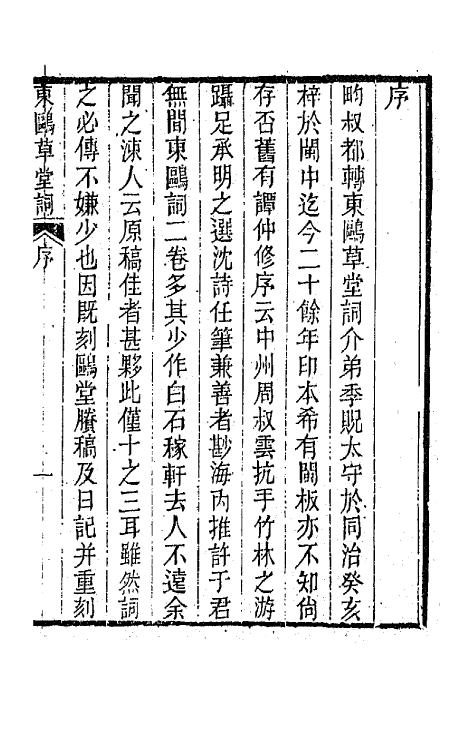 序
畇叔都轉東鷗草堂詞介弟季貺太守於同治癸亥
梓於閩中迄今二十餘年印本希有閩板亦不知尙
存否舊有譚仲修序云中州周叔雲抗手竹林之游
躡足承明之選沈詩任筆兼善者尠海內推許于君
無閒東鷗詞二卷多其少作白石稼軒去人不遠余
聞之涑人云原稿佳者甚夥此僅十之三耳雖然詞
之必傳不嫌少也因旣刻鷗堂賸稿及日記并重刻
東鷗草堂詞 序 一